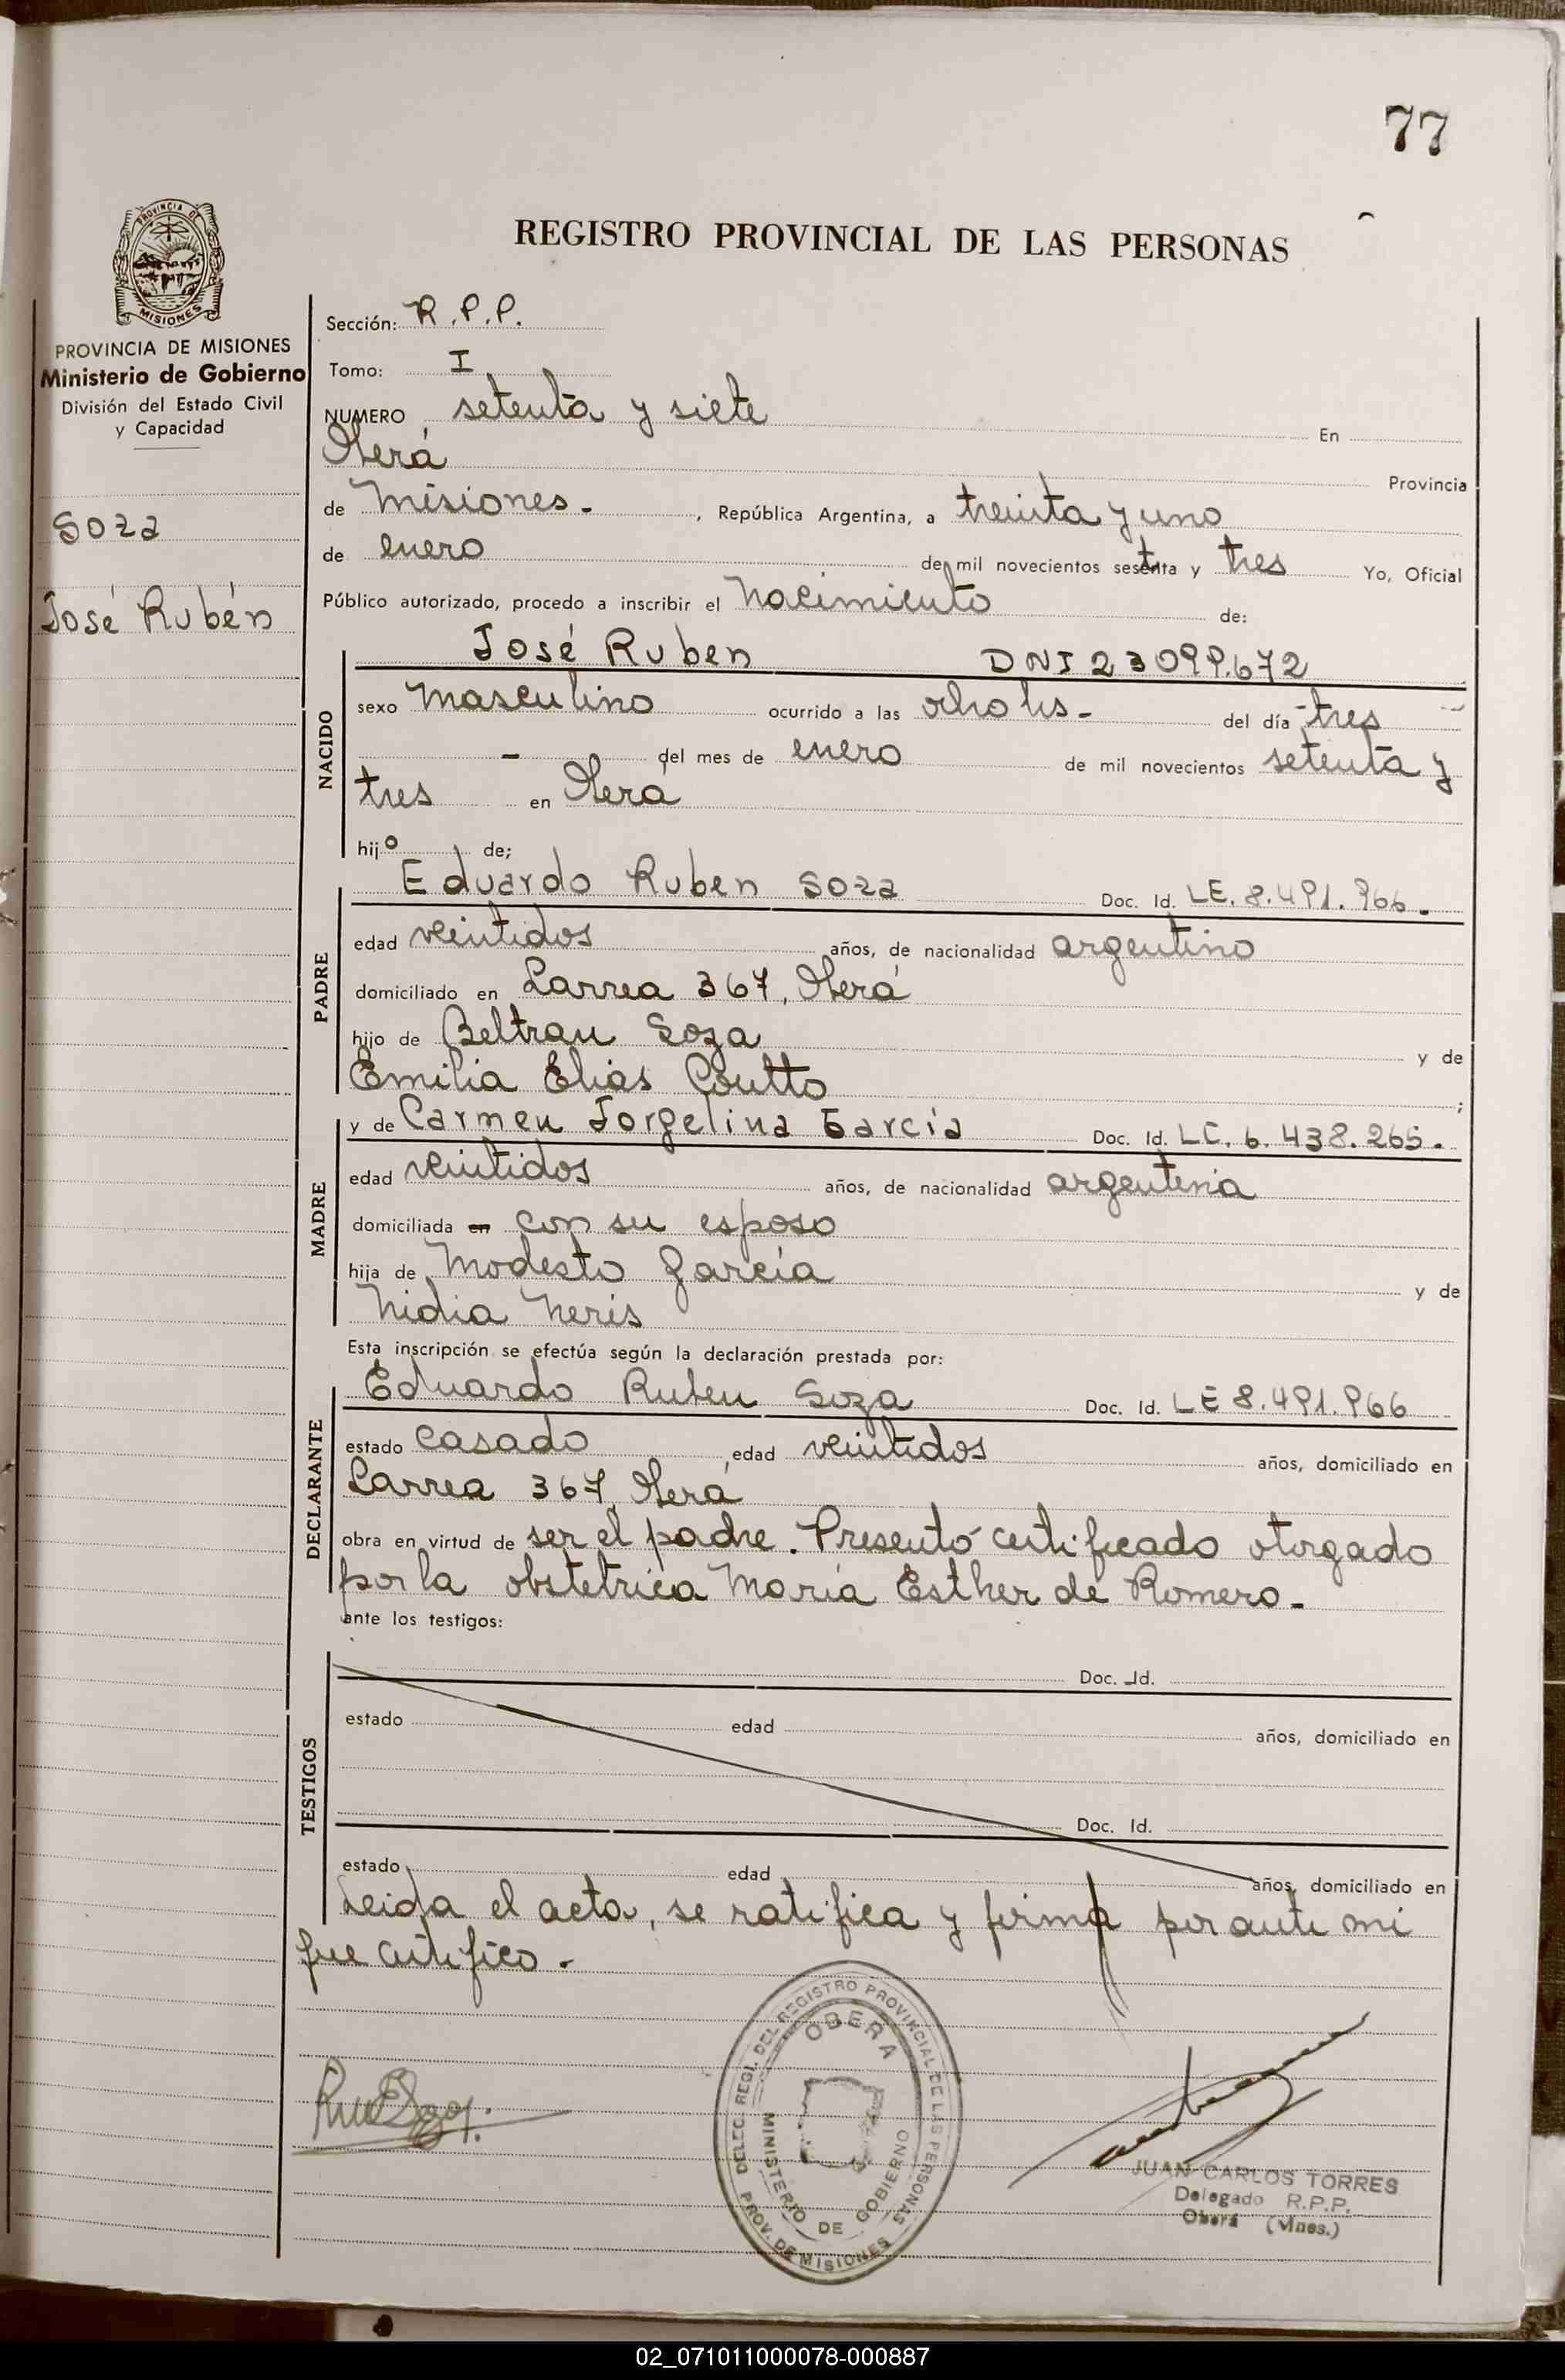 77
REGISTRO PROVINCIAL DE LAS PERSONAS
PROVINCIA DE MISIONES
PROVINCIA DE MISIONES
Ministerio de Gobierno
División del Estado Civil
y Capacidad
Soza
José Rubén
Sección: R.P.P.
Tomo: I
NUMERO setenta y siete En
Oberá Provincia
de Misiones.-, República Argentina, a treinta y uno
de enero de mil novecientos setenta y tres Yo, Oficial
Público autorizado, procedo a inscribir el nacimiento de:
NACIDO
José Ruben DNI 23099.672
sexo masculino ocurrido a las ocho hs- del día tres
- del mes de enero de mil novecientos setenta y
tres en Oberá
hijo de;
PADRE
Eduardo Ruben Soza Doc. Id. LE. 8.491.966.
edad veintidos años, de nacionalidad argentino
domiciliado en Larrea 367, Oberá
hijo de Beltran Soza y de
Emilia Elias Coutto ;
MADRE
y de Carmen Jorgelina García Doc. Id. LC. 6.438.265.
edad veintidos años, de nacionalidad argentina
domiciliada en con su esposo
hija de Modesto García y de
Nidia Neris
Esta inscripción se efectúa según la declaración prestada por:
DECLARANTE
Eduardo Ruben Soza Doc. Id. LE 8.491.966
estado casado, edad veintidos años, domiciliado en
Larrea 367, Oberá
obra en virtud de ser el padre. Presentó certificado otorgado
por la obstetrica María Esther de Romero.-
ante los testigos:
TESTIGOS
Doc. Id.
estado edad años, domiciliado en
Doc. Id.
estado edad años, domiciliado en
Leida el acta, se ratifica y firma por ante mi
que certifico.-
DELEC. REGL. DEL REGISTRO PROVINCIAL DE LAS PERSONAS
OBERA
MINISTERIO DE GOBIERNO
PROV. DE MISIONES
JUAN CARLOS TORRES
Delegado R.P.P.
Oberá (Mnes.)
02_071011000078-000887